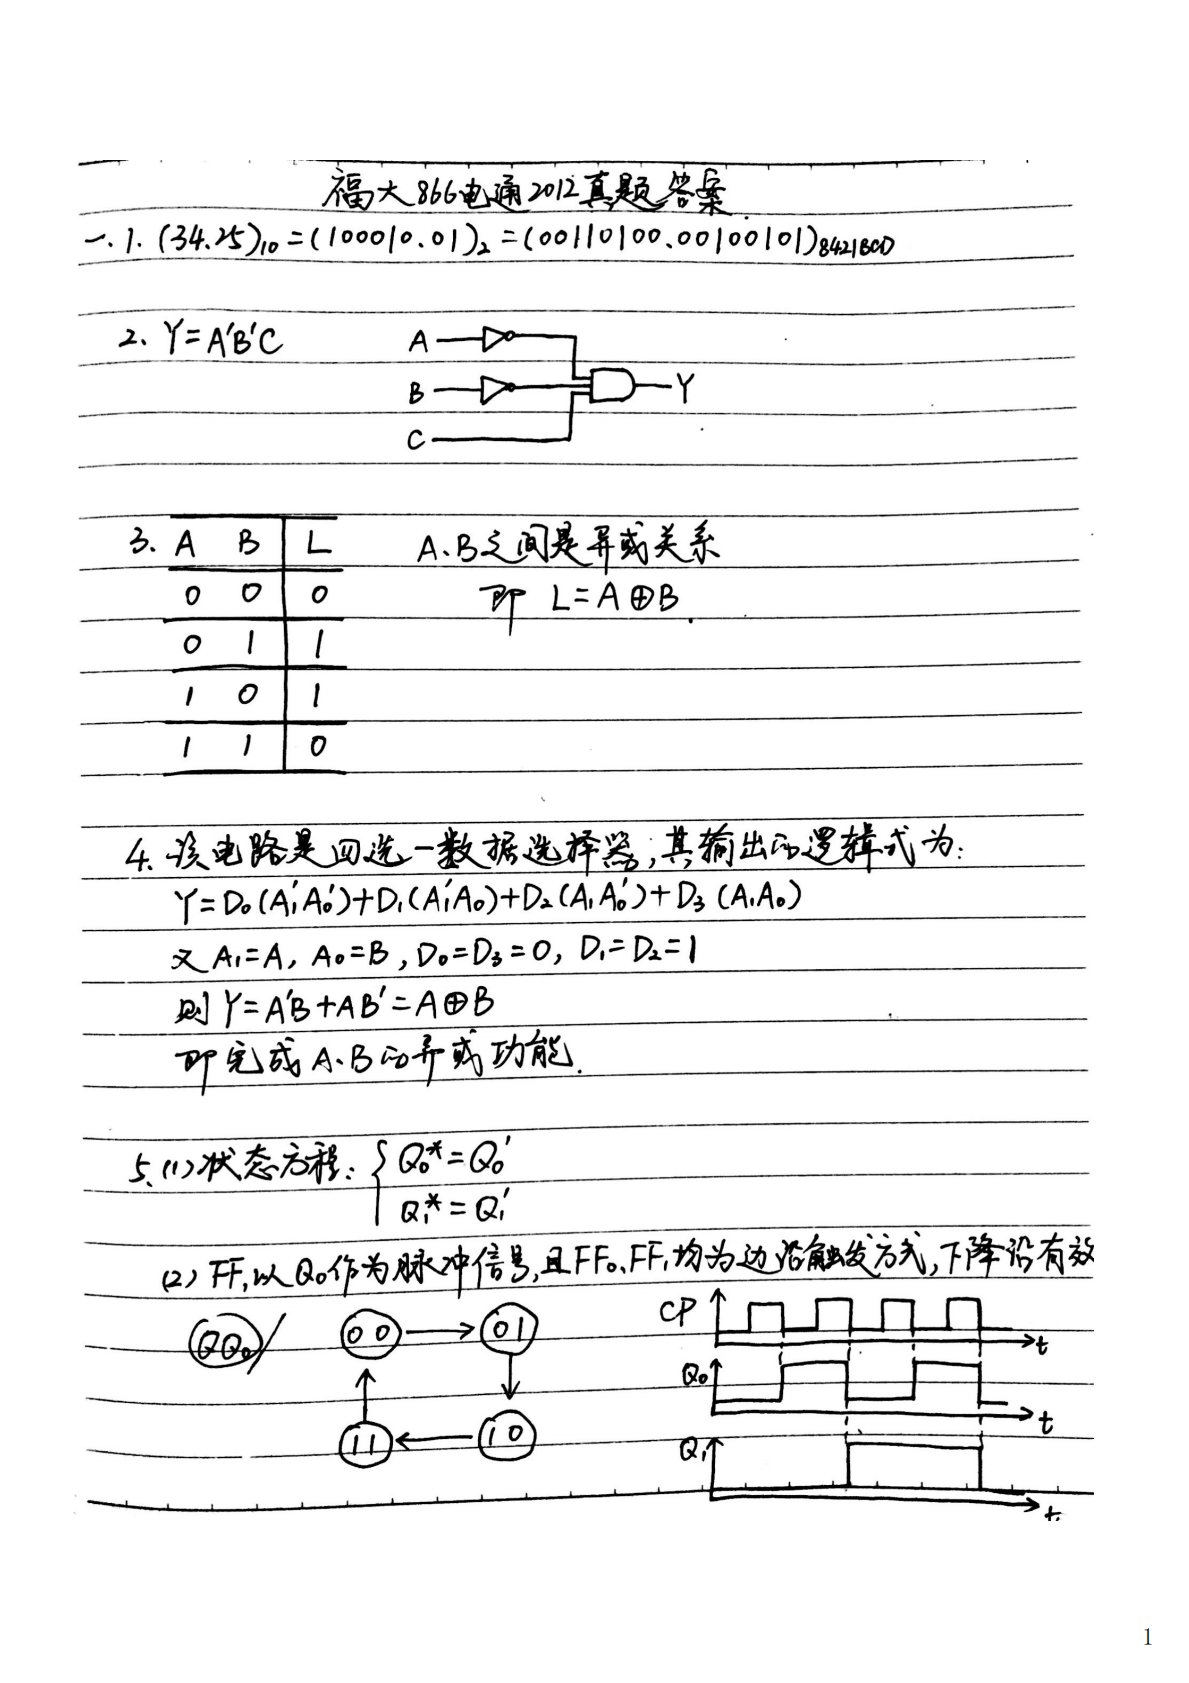 福大866电通2012真题答案
一.1. (34.25)₁₀=(100010.01)₂=(00110100.00100101)8421BCD
2. Y=A'B'C
A
B
Y
C
3. A B L
A、B之间是异或关系
0 0 0
即 L=A⊕B
0 1 1
1 0 1
1 1 0
4. 该电路是四选一数据选择器,其输出的逻辑式为:
Y=D₀(A₁'A₀')+D₁(A₁'A₀)+D₂(A₁A₀')+D₃(A₁A₀)
又A₁=A, A₀=B, D₀=D₃=0, D₁=D₂=1
则Y=A'B+AB'=A⊕B
即完成A、B的异或功能.
5.(1)状态方程: { Q₀*=Q₀'
Q₁*=Q₁'
(2) FF₁以Q₀作为脉冲信号,且FF₀、FF₁均为边沿触发方式,下降沿有效
Q₁Q₀/ 00 01
11 10
CP t
Q₀ t
Q₁ t
1